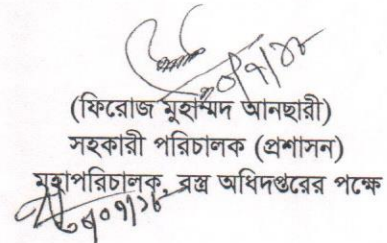 (ফিরোজ মুহাম্মদ আনছারী)
সহকারী পরিচালক (প্রশাসন)
মহাপরিচালক, বস্ত্র অধিদপ্তরের পক্ষে